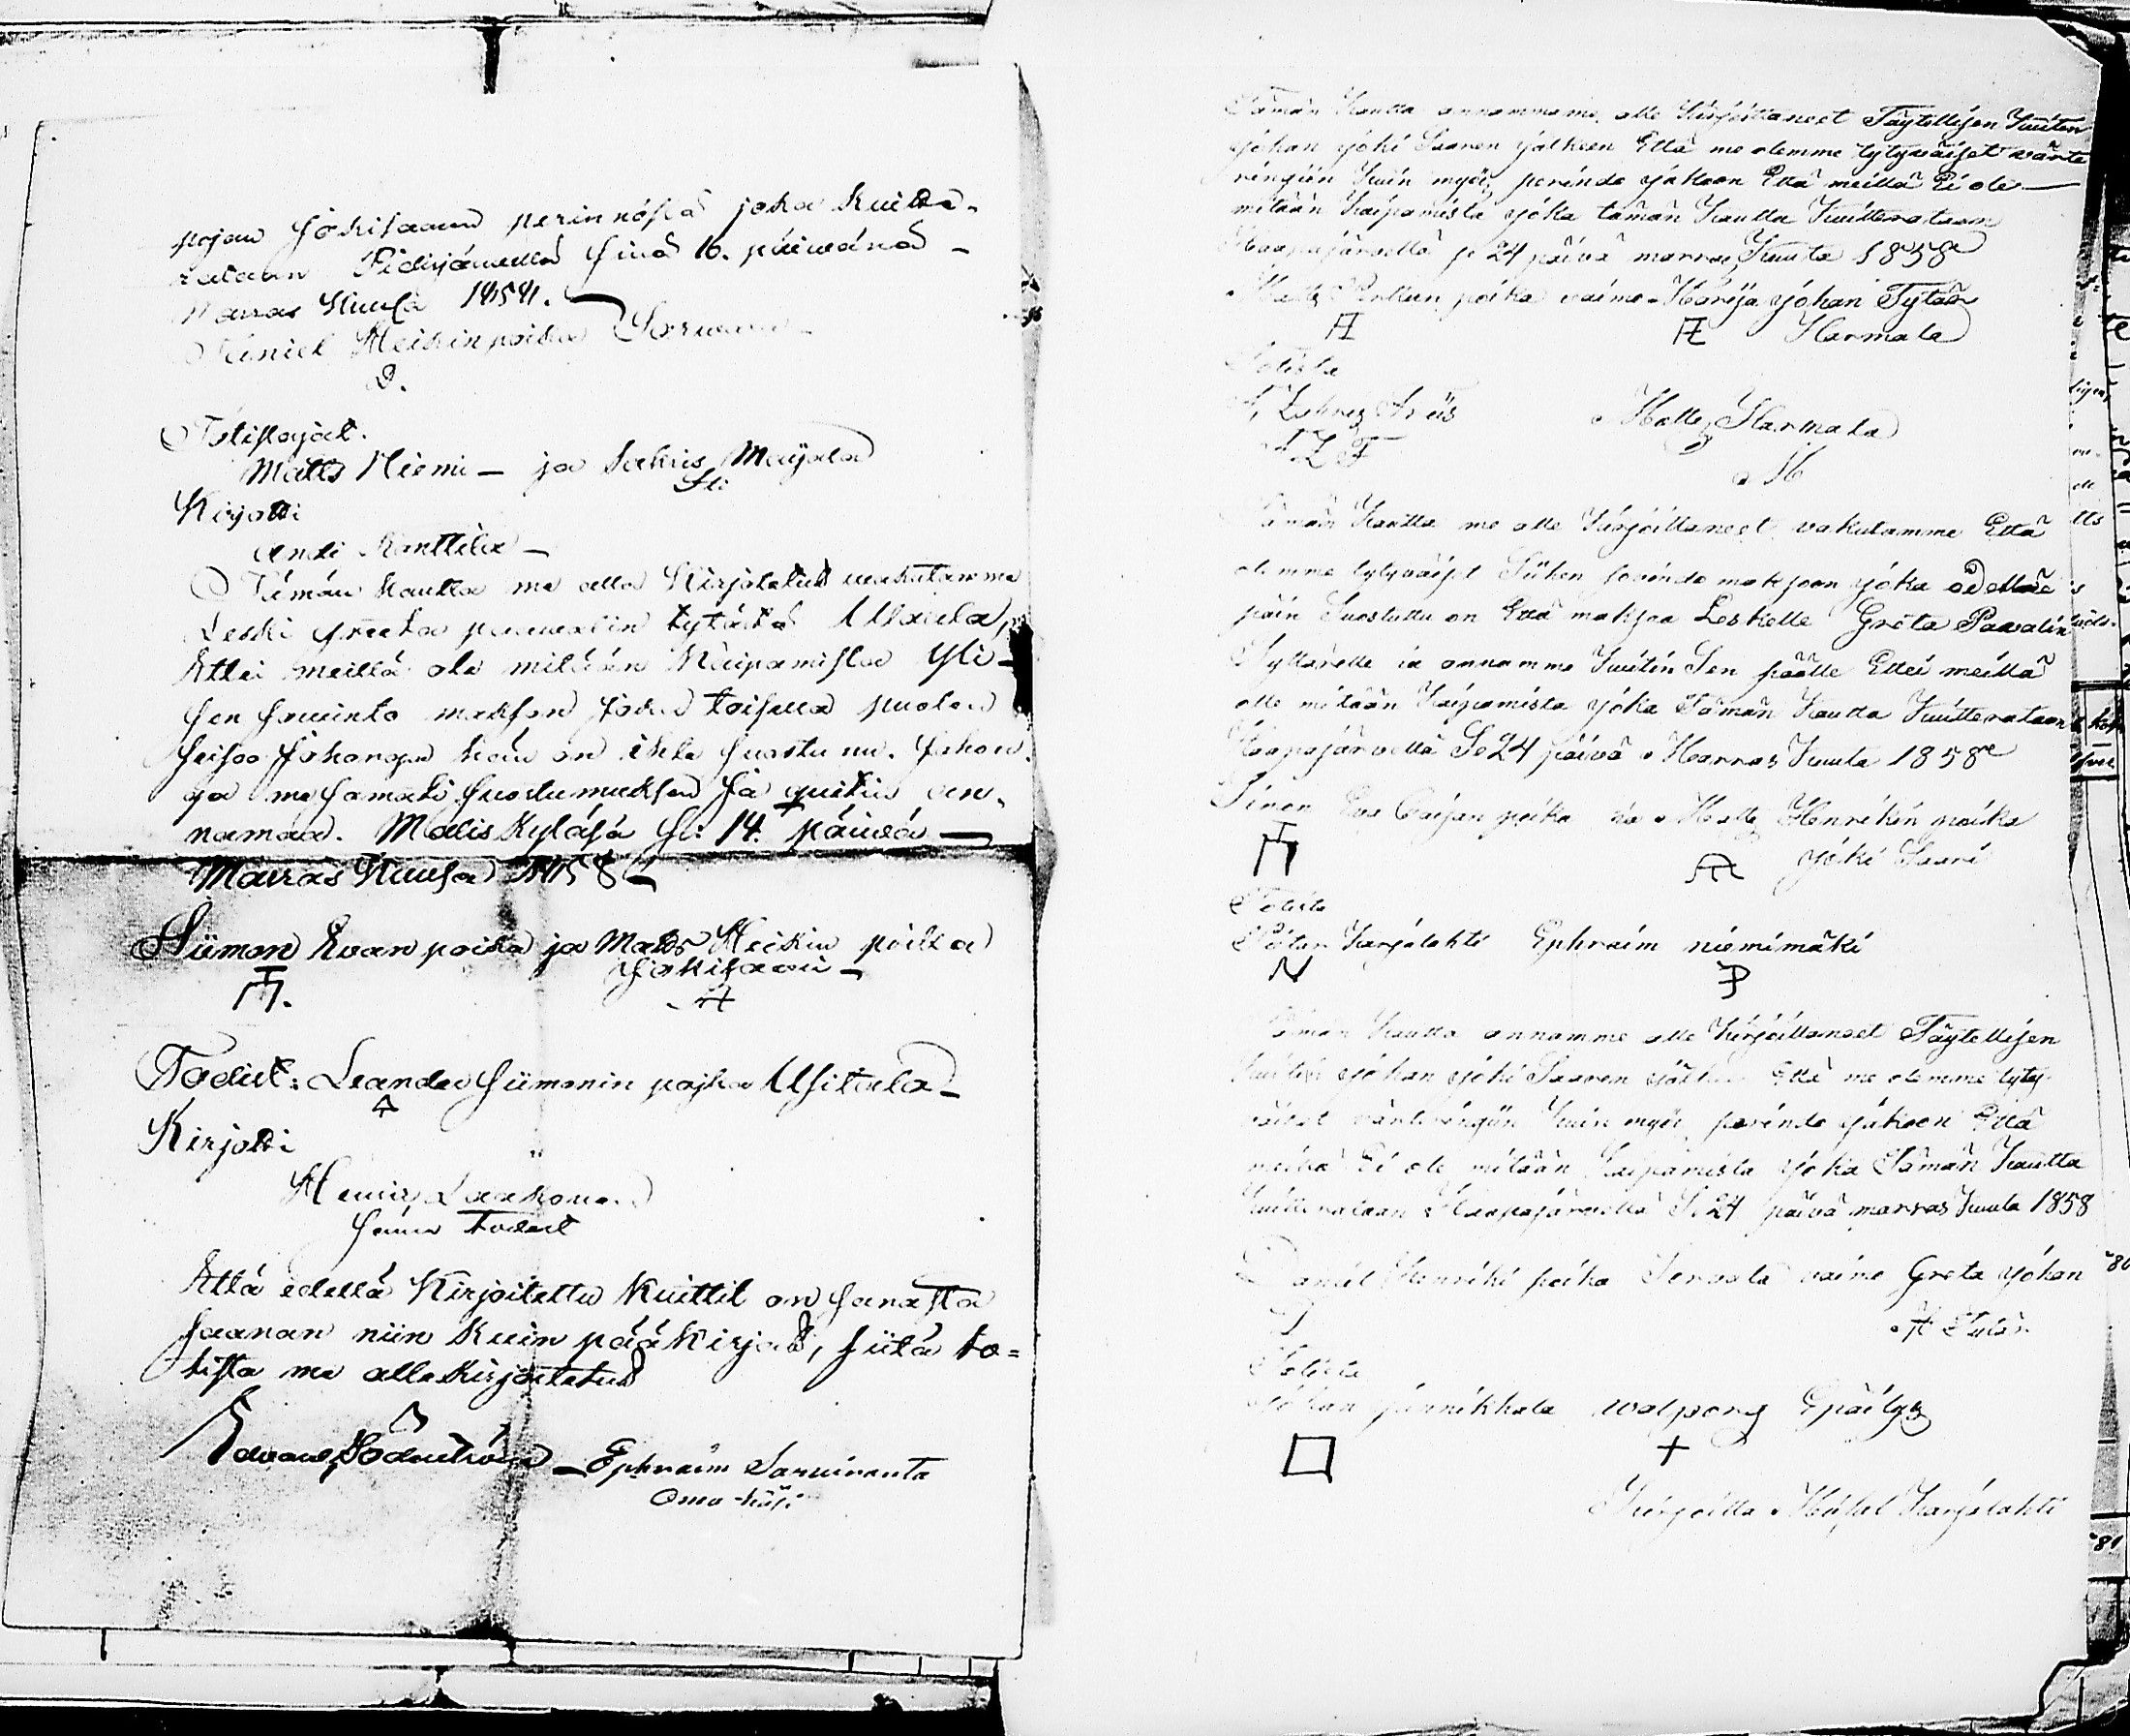 pojan Jokisaaren perinnöstä joka kuita-
rataan Pidisjärwellä sinä 16. päiwänä -
Marras Kuusa 1858.
Heikinpoika
D.
Totistajat.
Matts Niemi - ja Sakris Maijala
Kirjotti
Andi Kanttila -
Tämän kautta me alla Kirjotetut wakutamme
Leski Greeta paawalin tytärtä
Ettei meillä ole mitään Kaipamista Yli -
sen sowinto makson toisella puolen
seisoo Johonga hän on itte suostunu. Johon
ga me samate suostumuksen ja quitin an-
namaa. Maliskyläsä Se: 14. päiwä -
Marras Kuusa 1858 -
Siimon Evan poika ja Matts Heikin poika
Jokisaari -
Todist: Leander Siimonin pojka Uusitalo -
Kirjotti
Henrik Laakkonen
Että edellä Kirjoitettu Kuittit on sanasta
saanan niin Kuin pääkirjat, siitä to=
tista me allakirjoitetut
Edvard Söderström - Ephraim Sarwiranta
Oma käsi
Tämän Kautta annammame alle Kirjoittaneet Täytellisen Kuiten
johan joki Saaren jälkeen Että me olemme tytyväiset värte
ringiin Kuin myös perindo jakoon Että meillä Ei ole -
mitään Kaipamista joka tämän Kautta Kuitterataan
Haapajärvellä se 24 päivä marras Kuuta 1858
Matts poika vaimo Marija johan Tytär
Harmala
Totista
Matts Harmala
M
Tämän Kautta me alle Kirjoittaneet vakutamme Että
olemme tytyväiset Siihen sovindo maksoon joka edellä
päin Suostuttu on Että maksaa Leskelle Greta Paavalin
Tyttärelle ia annamme Kuitin Sen päälle Ettei meillä
olle mitään Kaipamista joka Tämän Kautta Kuitterataan
Haapajärvellä Se 24 päivä Marras Kuuta 1858
Simon poika ia Matts Henrikin poika
joki Saari
Totista
Petter Karjalahti Ephraim niemimäki
N
Tämän Kautta annamme alle Kirjoittaneet Täytellisen
Kuitin johan joki Saaren jälkeen Että me olemme tyty
väiset värteringiin Kuin myös perindo jakoon Että
meillä Ei ole mitään Kaipamista joka Tämän Kautta
Kuitterataan Haapajärvellä Se 24 päivä marras Kuuta 1858
Daniel Henriki poika vaimo Greta johan
Totista
Johan walpory Epäilys
+
Kirjoitta Karjalahti